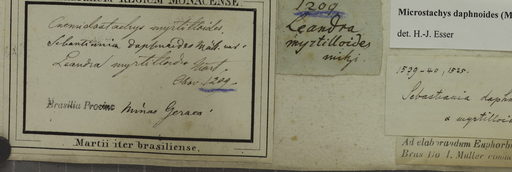 HERBARIUM REGIUM MONACENSE.
Cnemidostachys myrtilloides,
Sebastiania daphnoides Müll. arg.
Leandra myrtilloides Mart.
Obs. 1209.
Brasilia Provinc Minas Geraes
Martii iter brasiliense.
1209
Leandra
myrtilloides
Microstachys daphnoides (M
det. H.-J. Esser
1839-40, 1825.
Sebastiania daph
α myrtilloid
Ad elaborandum Euphorbi
Bras Do J. Müller commu